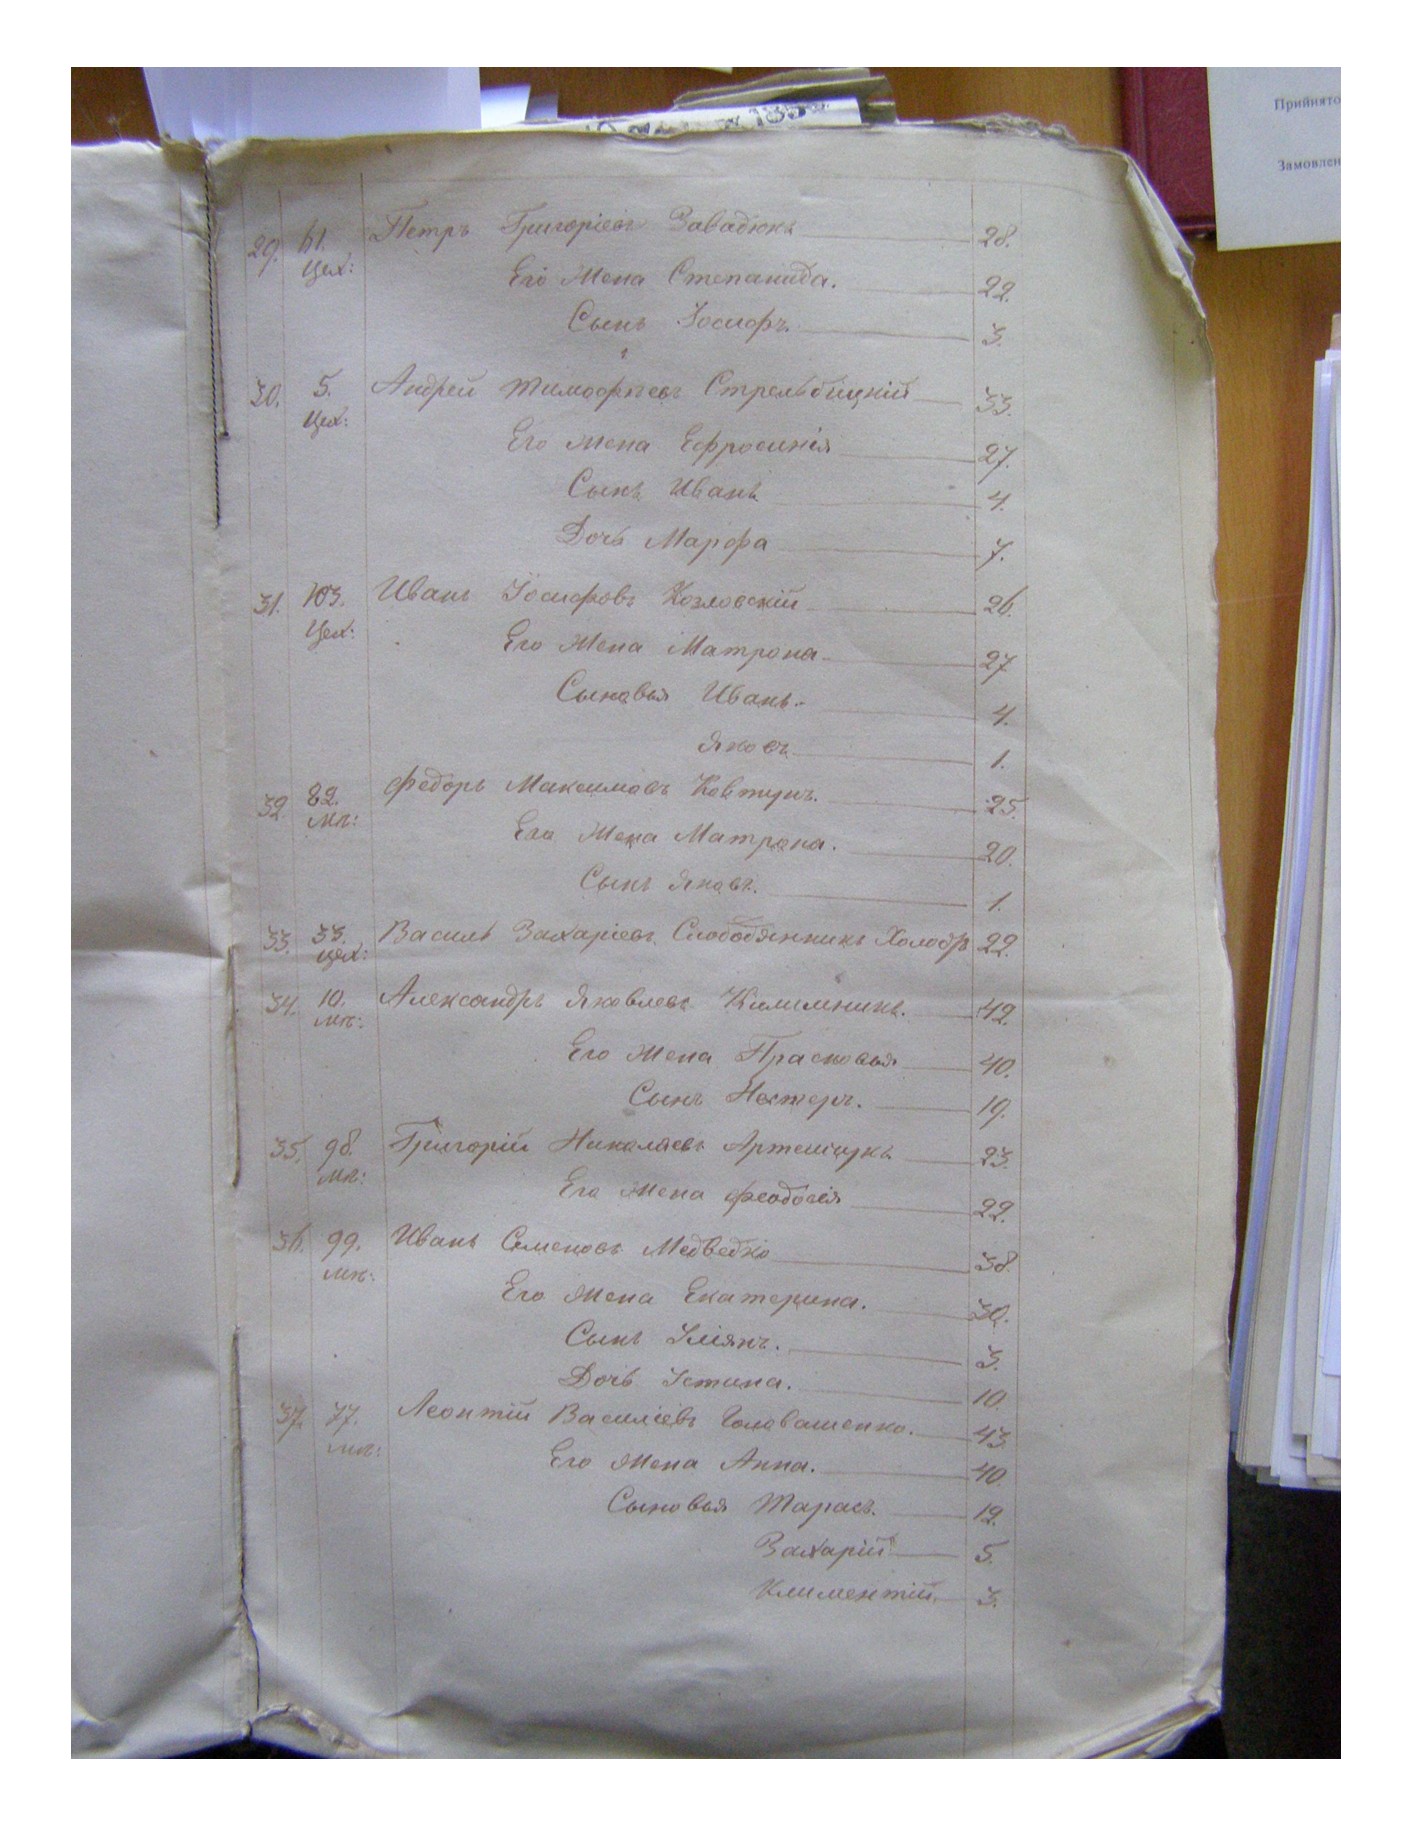 1858
Прийнято
Замовлен
29. 61. Петръ Григоріевъ Завадюкъ 28.
Цех: Его Жена Степанида. 22.
Сынъ Іосифъ. 3.
30. 5. Андрей Тимофѣевъ Стрельбіцкій 33.
Цех: Его Жена Ефросинія 27.
Сынъ Иванъ 4.
Дочь Марфа 7.
31. 103. Иванъ Іосифовъ Козловскій 26.
Цех: Его Жена Матрона 27
Сыновья Иванъ 4.
Яковъ 1.
32. 82. Федоръ Максимовъ Ковтунъ. 25.
мп: Его Жена Матрона. 20.
Сынъ Яковъ. 1.
33. 33. Василь Захаріевъ Слободянникъ Холодр 22.
цех:
34. 10. Александръ Яковлевъ Килимникъ. 42.
мп: Его Жена Прасковья 40.
Сынъ Нестеръ. 19.
35. 98. Григорій Николаевъ Артемчукъ 23.
мп: Его Жена Феодосія 22.
36. 99. Иванъ Семеновъ Медведко 38.
мп: Его Жена Екатерина. 30.
Сынъ Іліянъ. 3.
Дочь Устина. 10.
37. 77. Леонтій Василіевъ Головатенко. 43.
мп: Его Жена Анна. 40.
Сыновья Тарасъ. 12.
Захарій 5.
Климентій 3.